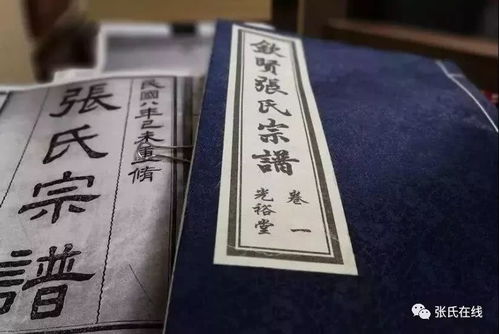 民國八年己未重脩
張氏宗譜
欽賢張氏宗譜
卷一
光裕堂
张氏在线